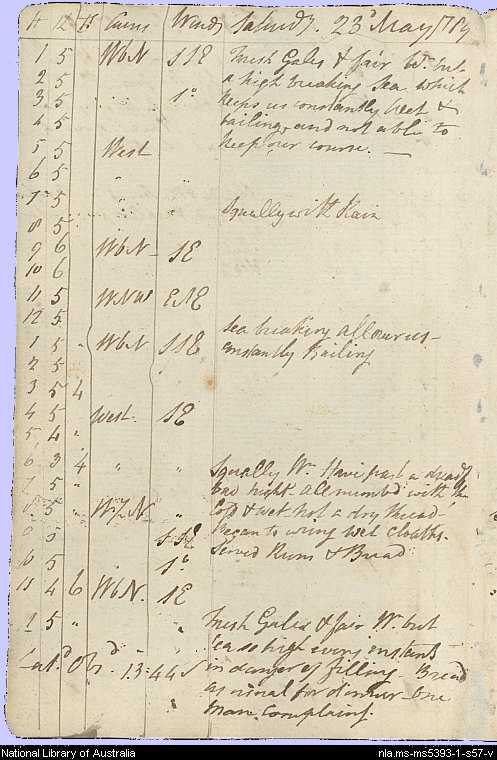 H K Fs Courses Winds Saturdy. 23d May 1789
1 5 WbN SSE Fresh Gales & fair Wr. but
2 5 a high breaking Sea which
3 5 " " So. keeps us constantly wet &
4 5 bailing, and not able to
5 5 West keep our course. —
6 5 "
7 5 " " Squally with Rain
8 5
9 6 WbN SE
10 6
11 5 WNW ESE
12 5
1 5 " WbN SSE Sea breaking all over us
2 5 constantly Bailing
3 5 4
4 5 West. SE
5 4 "
6 3 4 " " Squally Wr. Have past a dreadf
7 5 " bad night. all numbd with the
8 5 " " Cold & wet not a dry thread
9 5 SSE began to wring wet cloaths.
10 5 So. Served Rum & Bread
11 4 6 WbN. SE
12 5 " " Fresh Gales & fair Wr. but
" Sea so high every instant
Latd. Obsd. 13:44 S in danger of filling. Bread
as usual for dinner one
man complaing.
National Library of Australia nla.ms-ms5393-1-s57-v